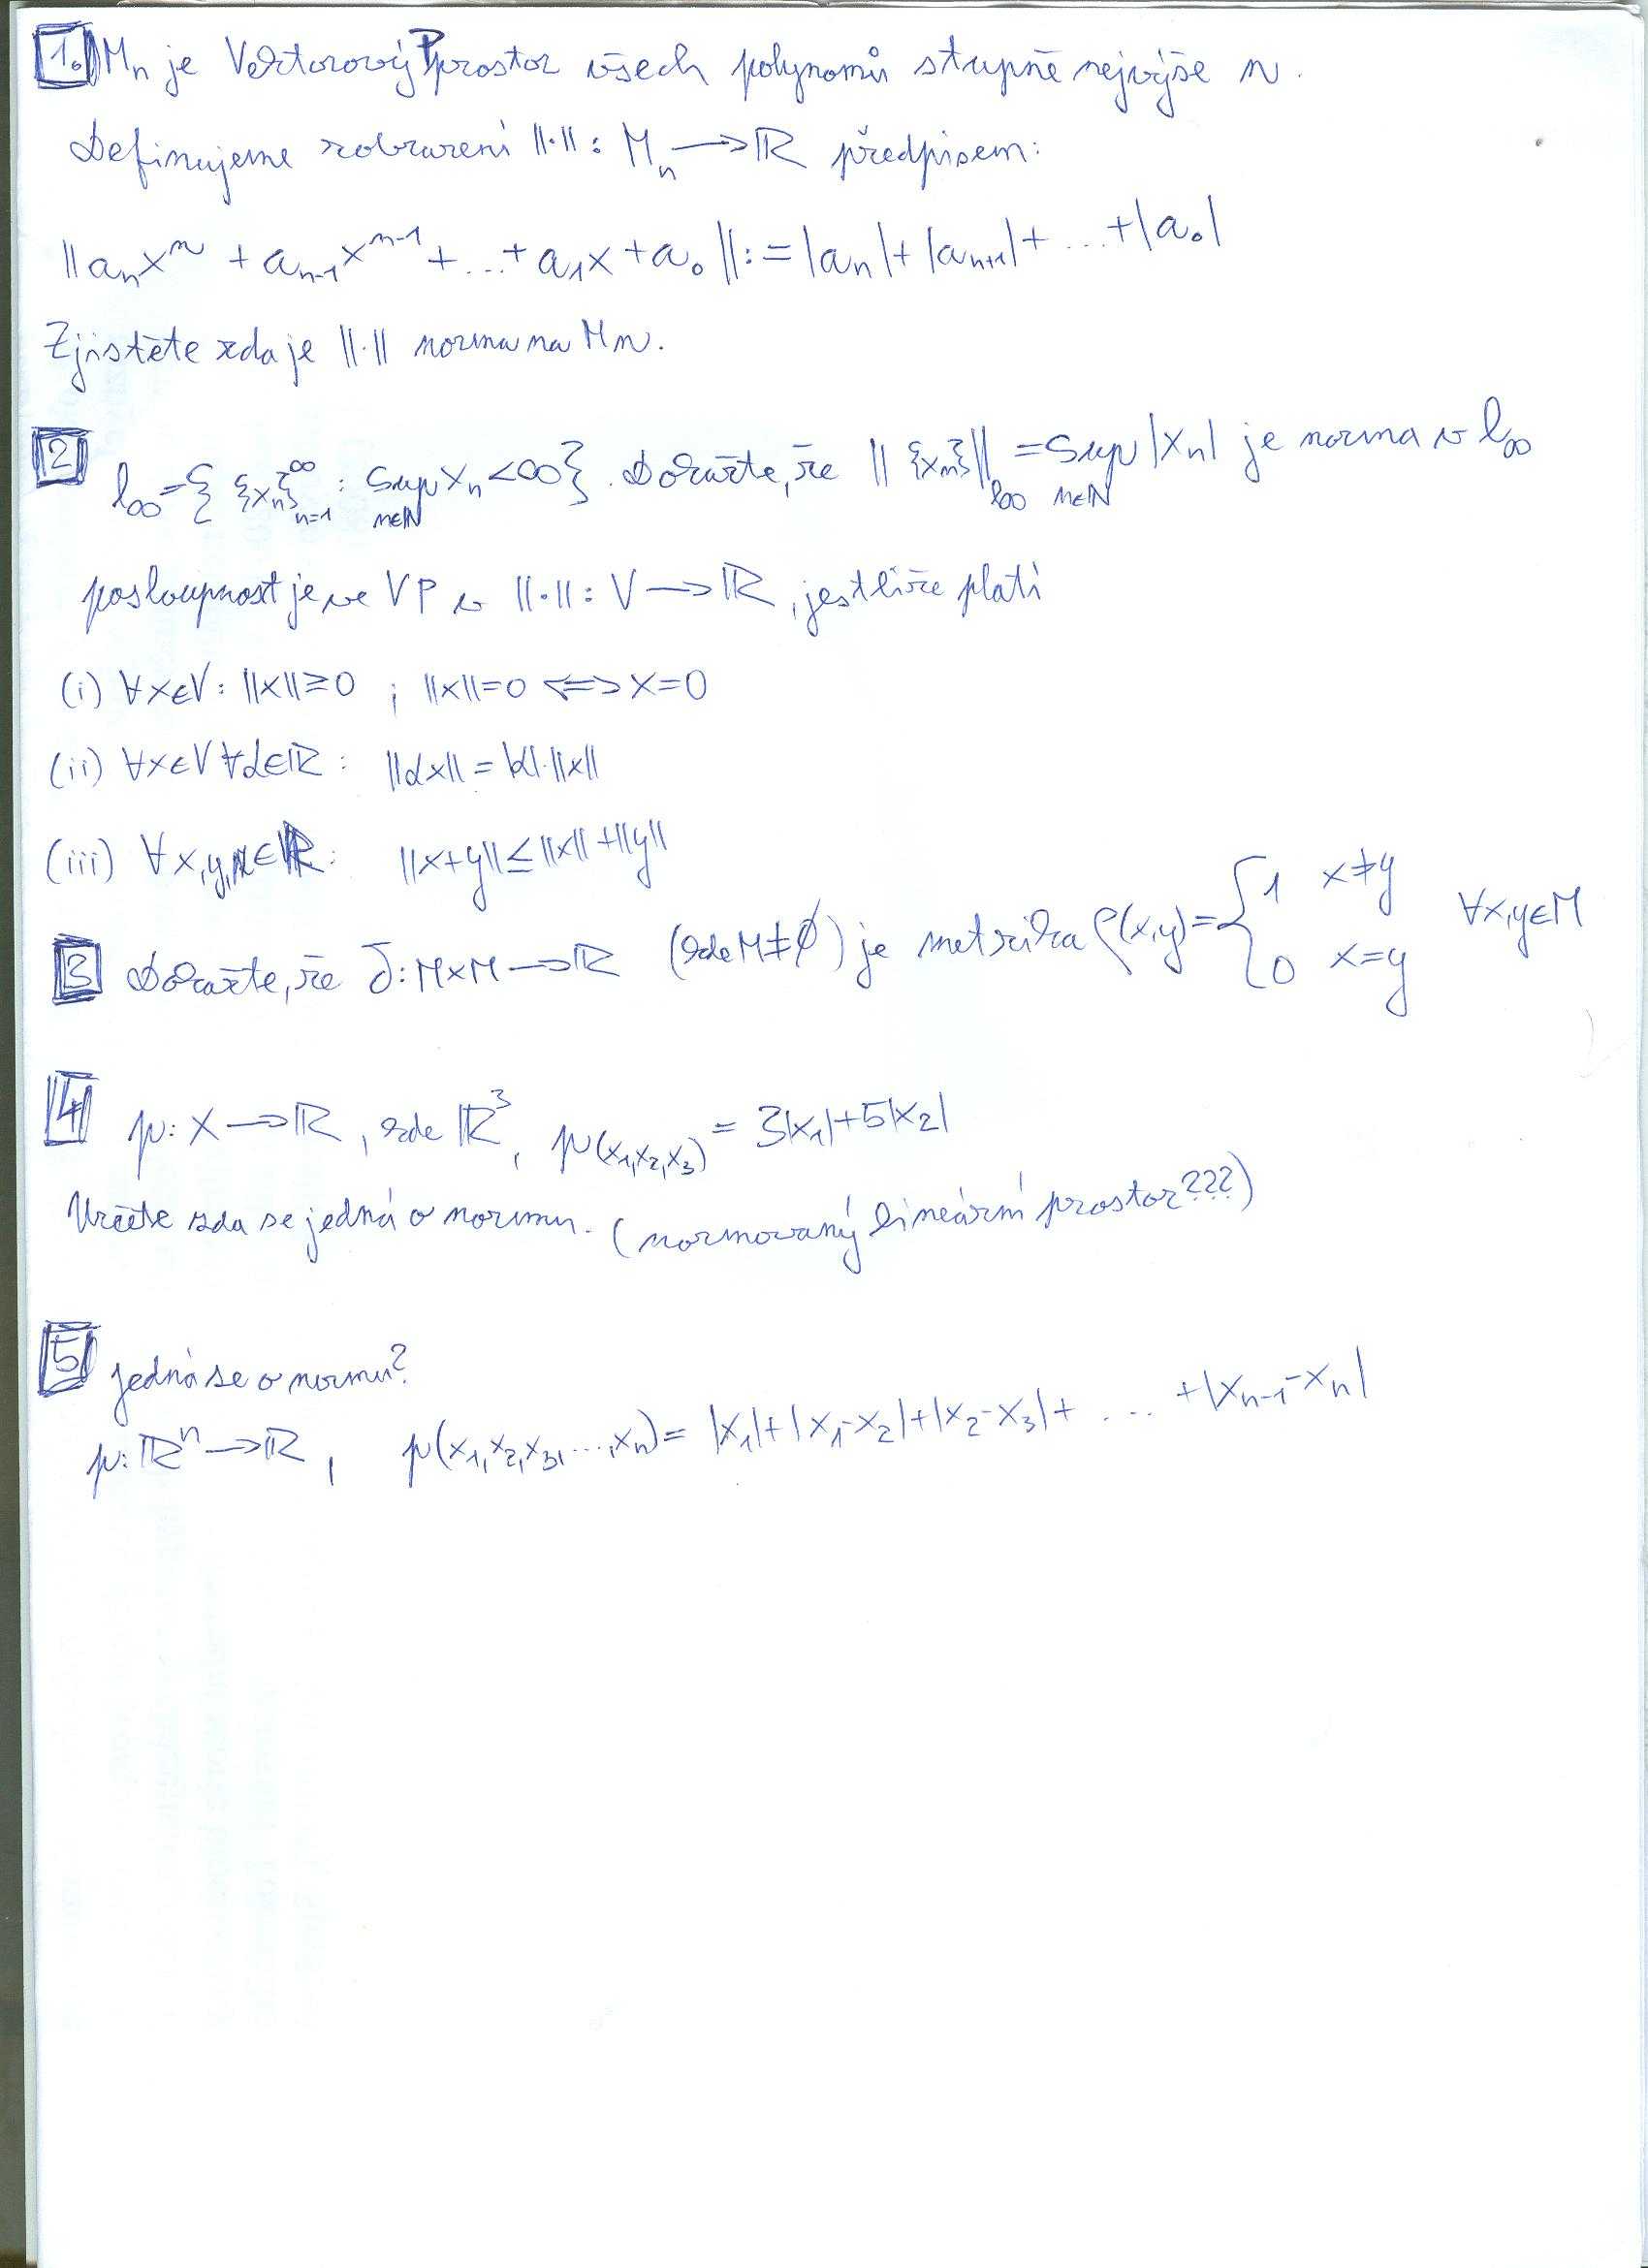 1. Mn je Vektorový Prostor všech polynomů stupně nejvýše n.
Definujeme zobrazení ||·||: Mn → ℝ předpisem:
||anxⁿ + an-1xⁿ⁻¹ + ... + a1x + a0|| := |an| + |an+1| + ... + |a0|
Zjistěte zda je ||·|| norma na Mn.
2 l∞ = { {xn}∞n=1 : sup n∈ℕ xn < ∞ }. Dokažte, že || {xn} ||l∞ = sup n∈ℕ |xn| je norma v l∞
posloupnost je ve VP v ||·||: V → ℝ, jestliže platí
(i) ∀x∈V: ||x|| ≥ 0 ; ||x|| = 0 ⟺ x = 0
(ii) ∀x∈V ∀α∈ℝ: ||αx|| = |α|·||x||
(iii) ∀x,y,∈ℝ: ||x+y|| ≤ ||x|| + ||y||
3 Dokažte, že : M×M → ℝ (kde M ≠ ∅) je metrika ρ(x,y) = { 1 x≠y 0 x=y ∀x,y∈M
4 p: X → ℝ, kde ℝ³, p(x1,x2,x3) = 3|x1| + 5|x2|
Určete zda se jedná o normu. (normovaný lineární prostor???)
5 jedná se o normu?
p: ℝⁿ → ℝ, p(x1,x2,x3,...,xn) = |x1| + |x1-x2| + |x2-x3| + ... + |xn-1-xn|